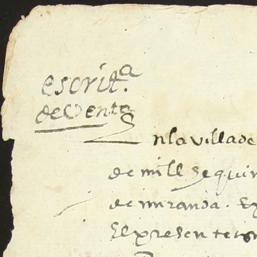 escritª
de Venta
nla villa de
de mill se quin
de miranda. E
El presente es